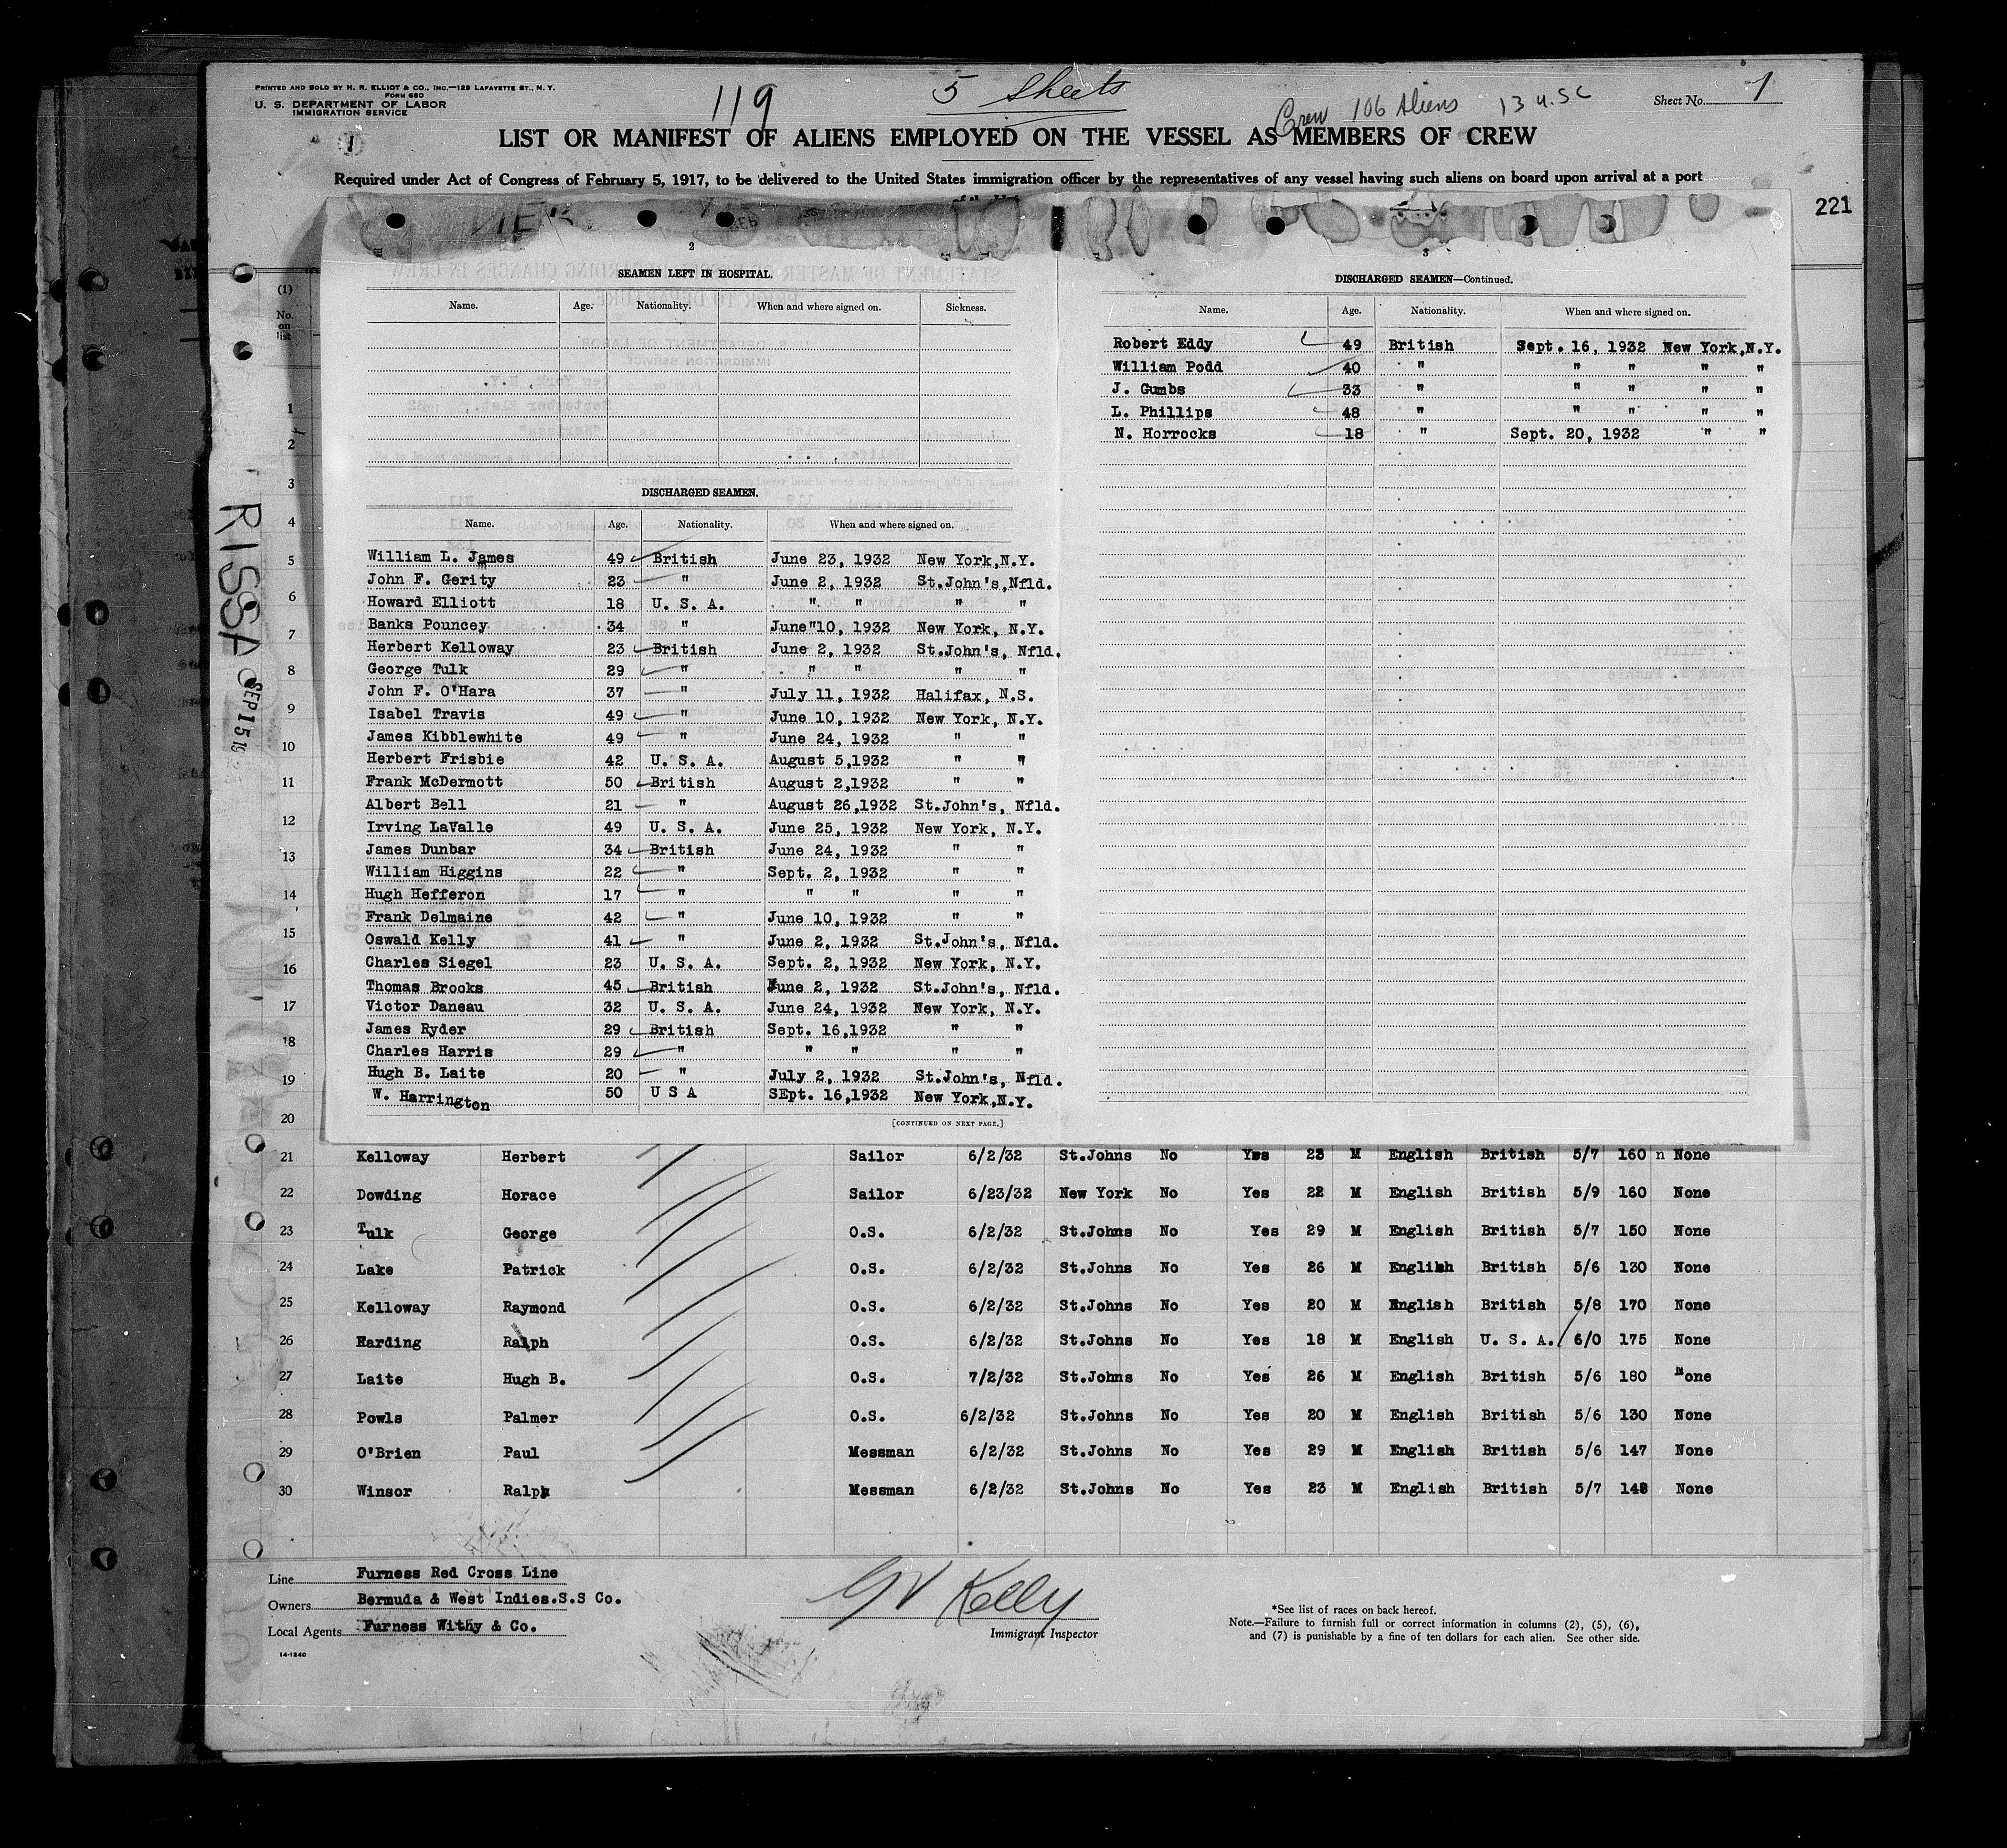 PRINTED AND SOLD BY H. R. ELLIOT & CO., INC.—129 LAFAYETTE ST., N. Y.
FORM 680
U. S. DEPARTMENT OF LABOR
IMMIGRATION SERVICE
119
5 Sheets
Crew 106 Aliens 13 U.S C
Sheet No. 1
1
LIST OR MANIFEST OF ALIENS EMPLOYED ON THE VESSEL AS MEMBERS OF CREW
Required under Act of Congress of February 5, 1917, to be delivered to the United States immigration officer by the representatives of any vessel having such aliens on board upon arrival at a port
221
(1)
No. on list
2
SEAMEN LEFT IN HOSPITAL.
Name. Age. Nationality. When and where signed on. Sickness.
DISCHARGED SEAMEN.
Name. Age. Nationality. When and where signed on.
William L. James 49 British June 23, 1932 New York,N.Y.
John F. Gerity 23 " June 2, 1932 St.John's,Nfld.
Howard Elliott 18 U. S. A. " " " "
Banks Pouncey 34 " June"10, 1932 New York, N.Y.
Herbert Kelloway 23 British June 2, 1932 St.John's, Nfld.
George Tulk 29 " " " " "
John F. O'Hara 37 " July 11, 1932 Halifax, N.S.
Isabel Travis 49 " June 10, 1932 New York, N.Y.
James Kibblewhite 49 " June 24, 1932 " "
Herbert Frisbie 42 U. S. A. August 5,1932 " "
Frank McDermott 50 British August 2,1932 " "
Albert Bell 21 " August 26,1932 St.John's, Nfld.
Irving LaValle 49 U. S. A. June 25, 1932 New York, N.Y.
James Dunbar 34 British June 24, 1932 " "
William Higgins 22 " Sept. 2, 1932 " "
Hugh Hefferon 17 " " " " "
Frank Delmaine 42 " June 10, 1932 " "
Oswald Kelly 41 " June 2, 1932 St.John's, Nfld.
Charles Siegel 23 U. S. A. Sept. 2, 1932 New York, N.Y.
Thomas Brooks 45 British June 2, 1932 St.John's, Nfld.
Victor Daneau 32 U. S. A. June 24, 1932 New York, N.Y.
James Ryder 29 British Sept. 16,1932 " "
Charles Harris 29 " " " " "
Hugh B. Laite 20 " July 2, 1932 St.John's, Nfld.
W. Harrington 50 U S A SEpt. 16,1932 New York,N.Y.
[CONTINUED ON NEXT PAGE.]
3
DISCHARGED SEAMEN—Continued.
Name. Age. Nationality. When and where signed on.
Robert Eddy 49 British Sept. 16, 1932 New York,N.Y.
William Podd 40 " " " " "
J. Gumbs 33 " " " " "
L. Phillips 48 " " " " "
N. Horrocks 18 " Sept. 20, 1932 " "
1
2
3
4
5
6
7
8
9
10
11
12
13
14
15
16
17
18
19
20
RISSA
SEP 15 19
21 Kelloway Herbert Sailor 6/2/32 St.Johns No Yes 23 M English British 5/7 160 n None
22 Dowding Horace Sailor 6/23/32 New York No Yes 22 M English British 5/9 160 None
23 Tulk George O.S. 6/2/32 St.Johns No Yes 29 M English British 5/7 150 None
24 Lake Patrick O.S. 6/2/32 St.Johns No Yes 26 M English British 5/6 130 None
25 Kelloway Raymond O.S. 6/2/32 St.Johns No Yes 20 M English British 5/8 170 None
26 Harding Ralph O.S. 6/2/32 St.Johns No Yes 18 M English U. S. A. 6/0 175 None
27 Laite Hugh B. O.S. 7/2/32 St.Johns No Yes 26 M English British 5/6 180 None
28 Powls Palmer O.S. 6/2/32 St.Johns No Yes 20 M English British 5/6 130 None
29 O'Brien Paul Messman 6/2/32 St.Johns No Yes 29 M English British 5/6 147 None
30 Winsor Ralph Messman 6/2/32 St.Johns No Yes 23 M English British 5/7 148 None
Line Furness Red Cross Line
Owners Bermuda & West Indies.S.S Co.
Local Agents Furness Withy & Co.
14-1240
GV Kelly
Immigrant Inspector
*See list of races on back hereof.
Note.—Failure to furnish full or correct information in columns (2), (5), (6),
and (7) is punishable by a fine of ten dollars for each alien. See other side.